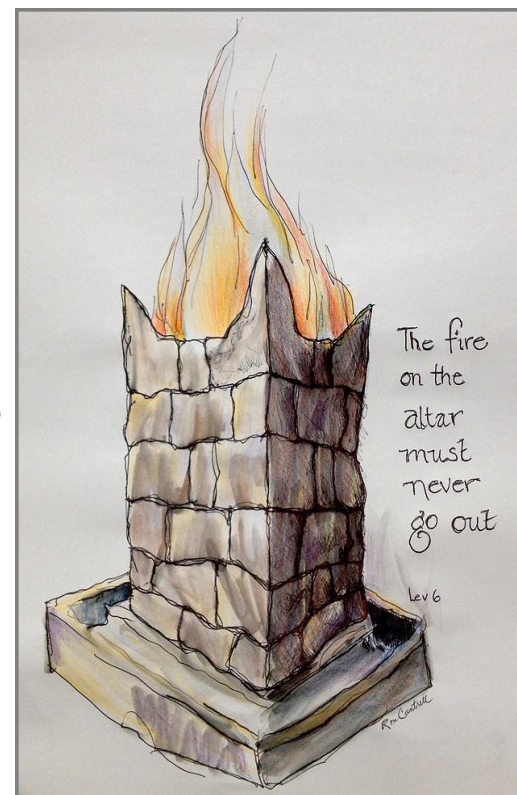 The fire
on the
altar
must
never
go out
Lev 6
Rm Cantrell